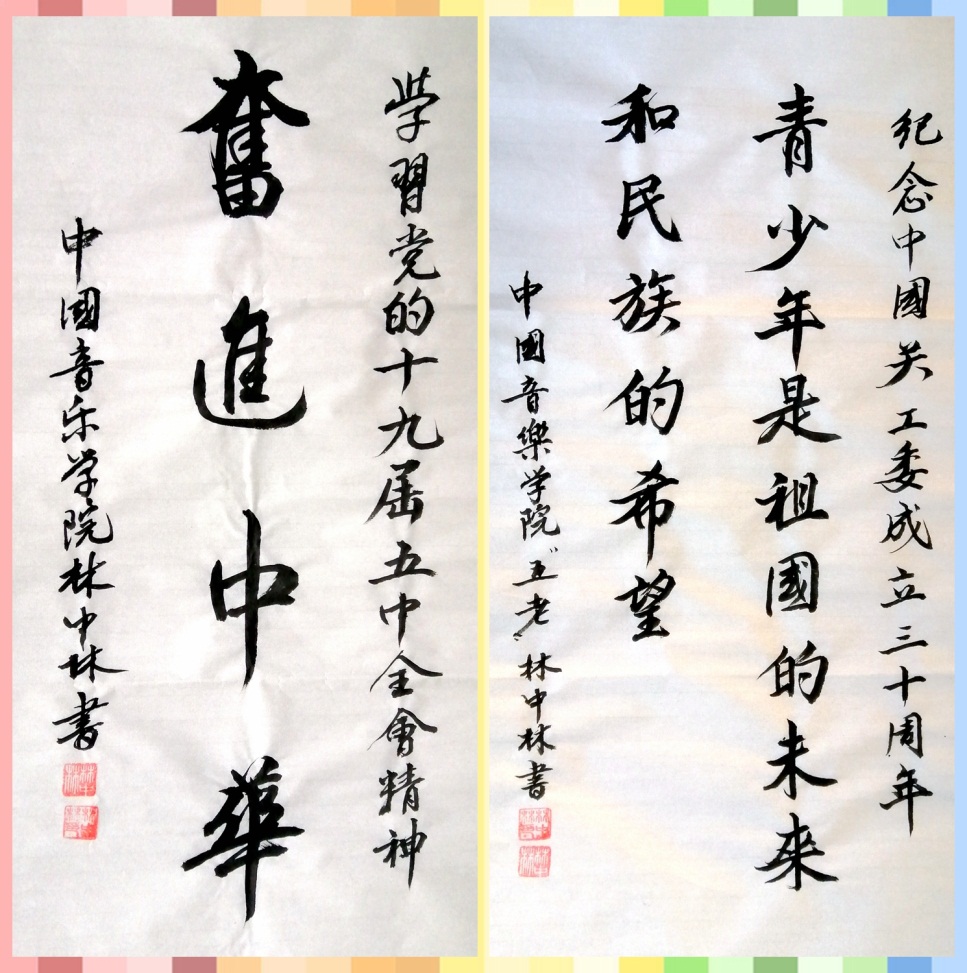 學習党的十九屆五中全會精神
奮進中華
中國音乐学院林中林書
纪念中國关工委成立三十周年
青少年是祖國的未來
和民族的希望
中國音樂学院"五老"林中林書